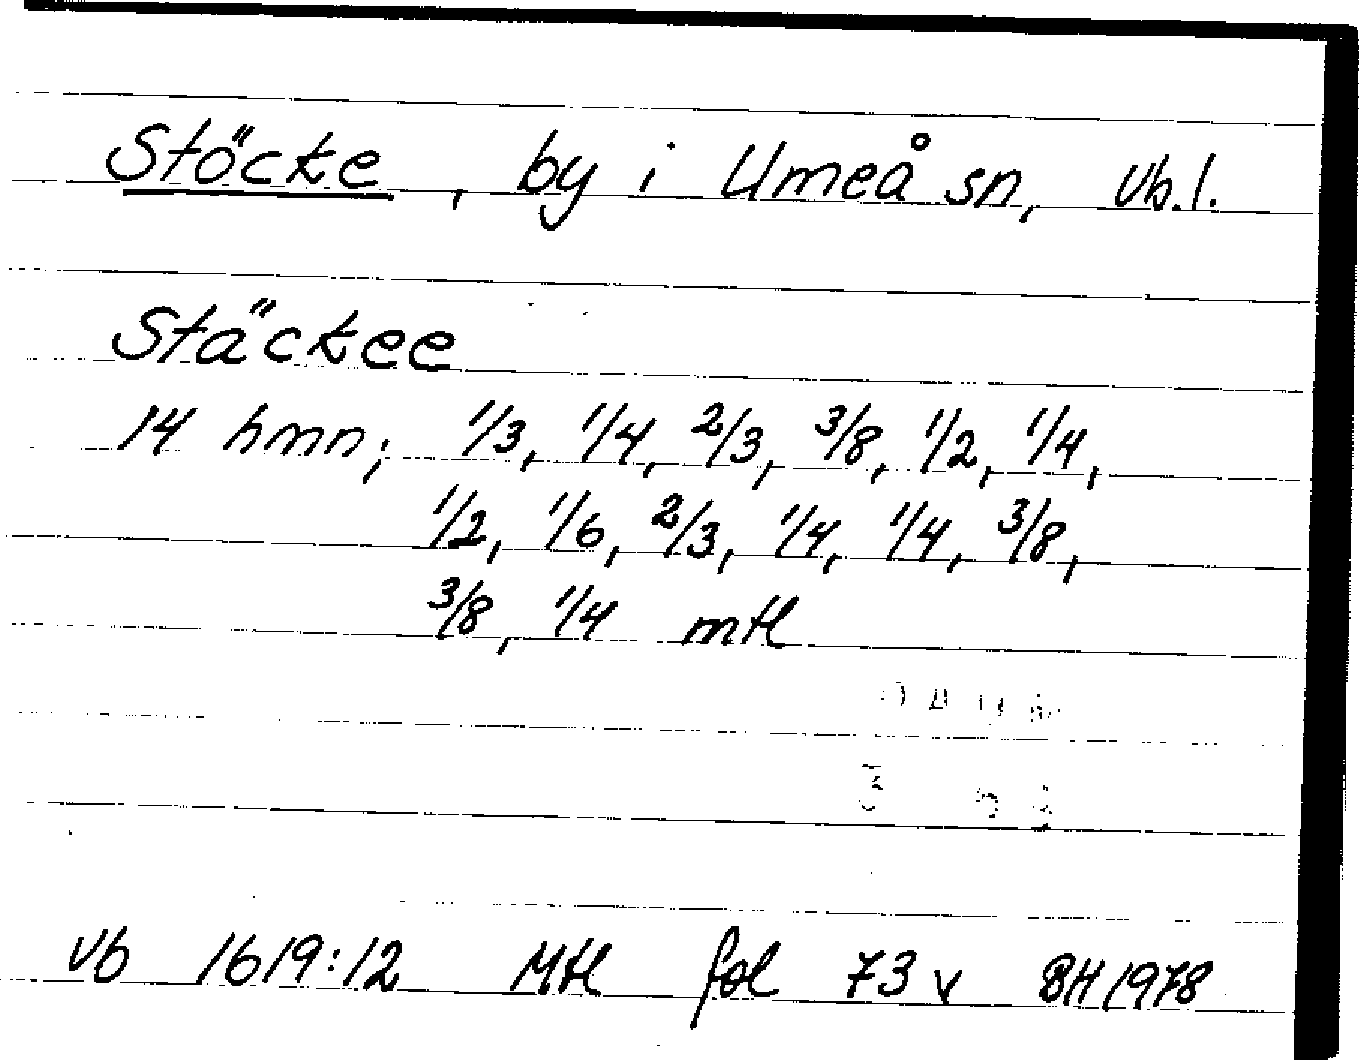 Stöcke, by i Umeå sn, Vb.l.
Stäckee
14 hmn; 1/3, 1/4, 2/3, 3/8, 1/2, 1/4,
1/2, 1/6, 2/3, 1/4, 1/4, 3/8,
3/8, 1/4 mtl
Vb 1619:12 Mtl fol 73 v BH 1978